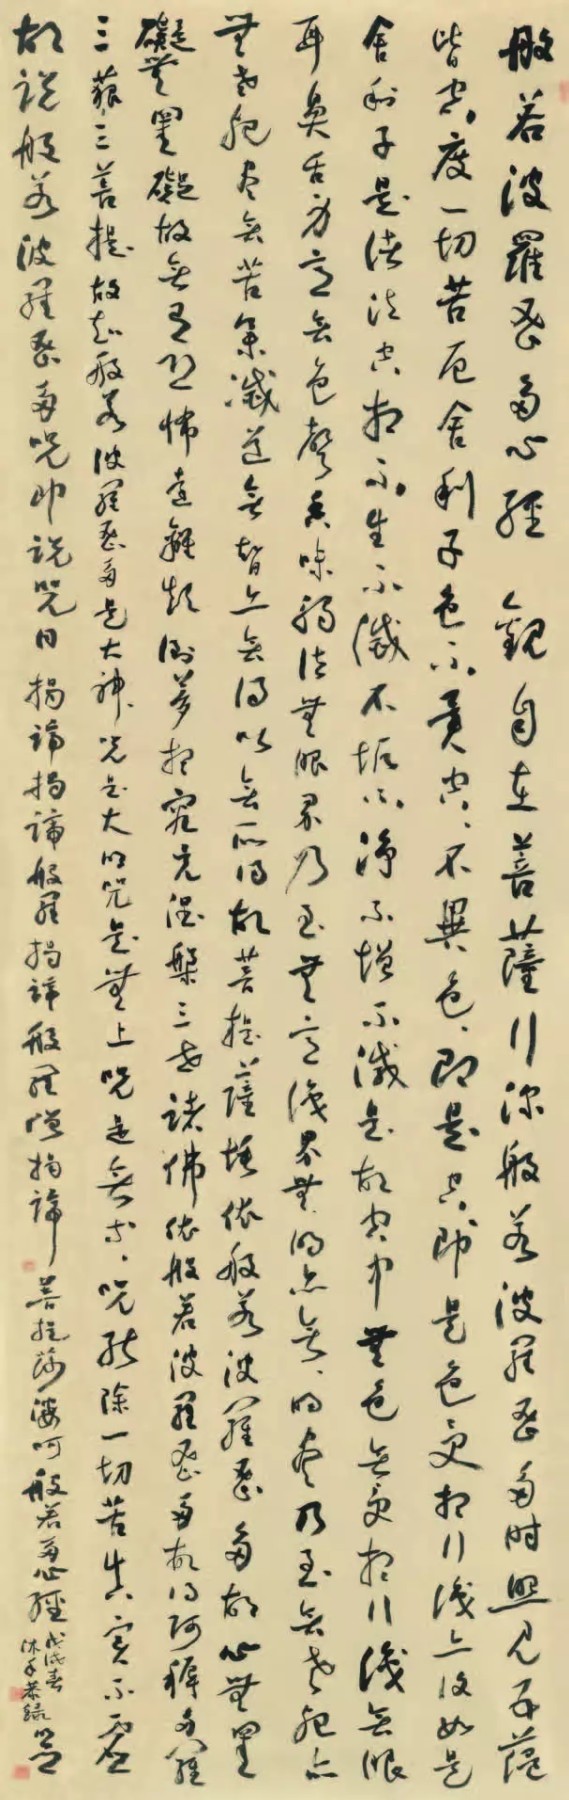 般若波羅蜜多心經 觀自在菩薩行深般若波羅蜜多時照見五蘊
皆空度一切苦厄舍利子色不異空、不異色、即是空即是色受想行識亦復如是
舍利子是諸法空相不生不滅不垢不淨不增不減是故空中無色無受想行識無眼
耳鼻舌身意無色聲香味觸法無眼界乃至無意識界無、明亦無、明盡乃至無老死亦
無老死盡無苦集滅道無智亦無得以無所得故菩提薩埵依般若波羅蜜多故心無罣
礙無罣礙故無有恐怖遠離顛倒夢想究竟涅槃三世諸佛依般若波羅蜜多故得阿耨多羅
三藐三菩提故知般若波羅蜜多是大神咒是大明咒是無上咒是無等、咒能除一切苦真實不虛
故說般若波羅蜜多咒即說咒曰揭諦揭諦般羅揭諦般羅僧揭諦菩提莎婆呵般若多心經
戊戌春
沐手恭録